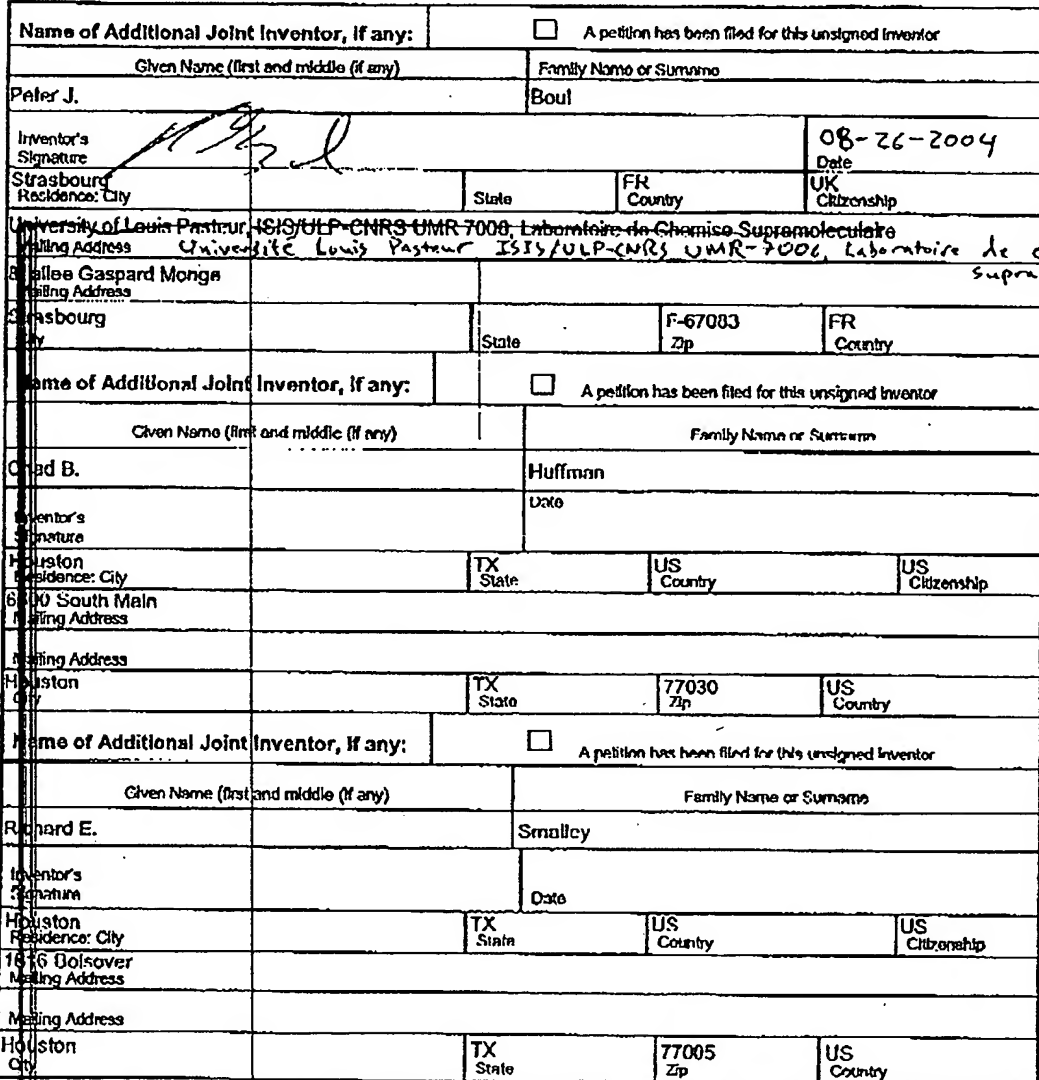 Name of Additional Joint Inventor, if any: A petition has been filed for this unsigned inventor
Given Name (first and middle (if any) Family Name or Surname
Peter J. Boul
Inventor's Signature 08-26-2004 Date
Strasbourg FR UK
Residence: City State Country Citizenship
University of Louis Pasteur, ISIS/ULP-CNRS UMR 7006, Laboratoire de Chemise Supramoleculaire
Mailing Address Université Louis Pasteur ISIS/ULP-CNRS UMR-7006, Laboratoire de c
Supra
allee Gaspard Monge
Mailing Address
Strasbourg F-67083 FR
City State Zip Country
Name of Additional Joint Inventor, if any: A petition has been filed for this unsigned inventor
Given Name (first and middle (if any) Family Name or Surname
Chad B. Huffman
Inventor's Signature Date
Houston TX US US
Residence: City State Country Citizenship
South Main
Mailing Address
Mailing Address
Houston TX 77030 US
City State Zip Country
Name of Additional Joint Inventor, if any: A petition has been filed for this unsigned inventor
Given Name (first and middle (if any) Family Name or Surname
Richard E. Smalley
Inventor's Signature Date
Houston TX US US
Residence: City State Country Citizenship
Bolsover
Mailing Address
Mailing Address
Houston TX 77005 US
City State Zip Country